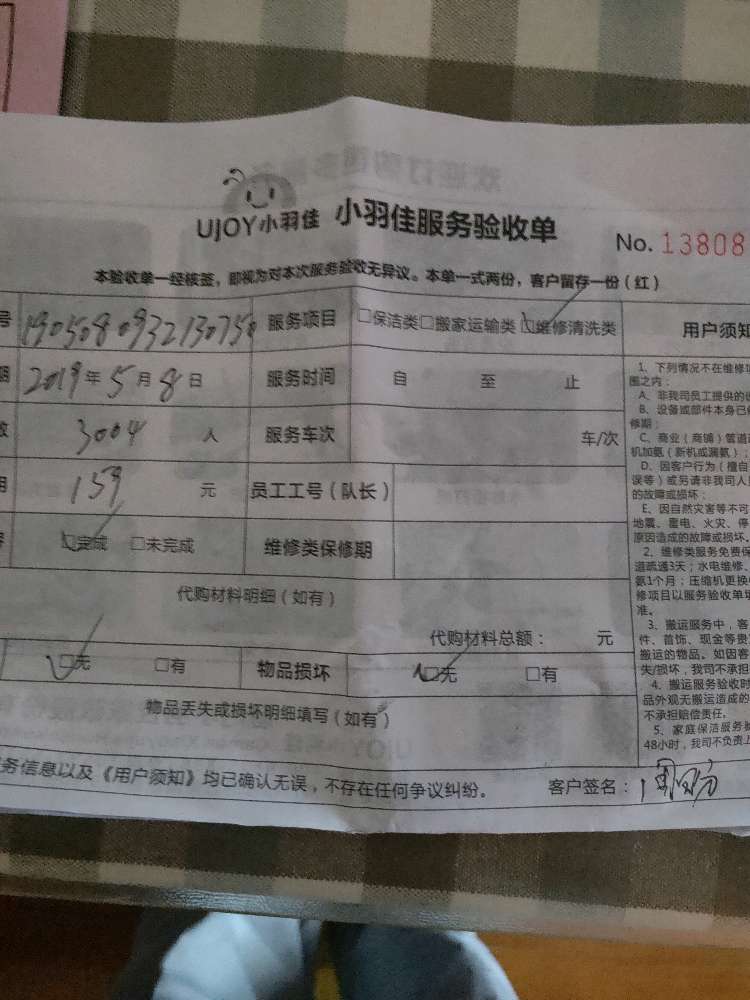 UJOY小羽佳 小羽佳服务验收单
No. 13808
本验收单一经核签，即视为对本次服务验收无异议。本单一式两份，客户留存一份（红）
号 190508093213075 服务项目 □保洁类□搬家运输类□维修清洗类 用户须知
期 2019年5月8日 服务时间 自 至 止
数 3004 人 服务车次 车/次
用 159 元 员工工号（队长）
□完成 □未完成 维修类保修期
代购材料明细（如有）
代购材料总额： 元
□无 □有 物品损坏 □无 □有
物品丢失或损坏明细填写（如有）
务信息以及《用户须知》均已确认无误，不存在任何争议纠纷。 客户签名：
1、下列情况不在维修
围之内：
A、非我司员工提供的
B、设备或部件本身已
修期；
C、商业（商铺）管道
机加氨（新机或漏氨）；
D、因客户行为（擅自
误等）或另请非我司人
的故障或损坏；
E、因自然灾害等不可
地震、雷电、火灾、停
原因造成的故障或损坏。
2、维修类服务免费保
道疏通3天；水电维修、
氨1个月；压缩机更换
修项目以服务验收单
准。
3、搬运服务中，客
件、首饰、现金等贵
搬运的物品。如因客
失/损坏，我司不承担
4、搬运服务验收时
品外观无搬运造成的
不承担赔偿责任。
5、家庭保洁服务
48小时，我司不负责